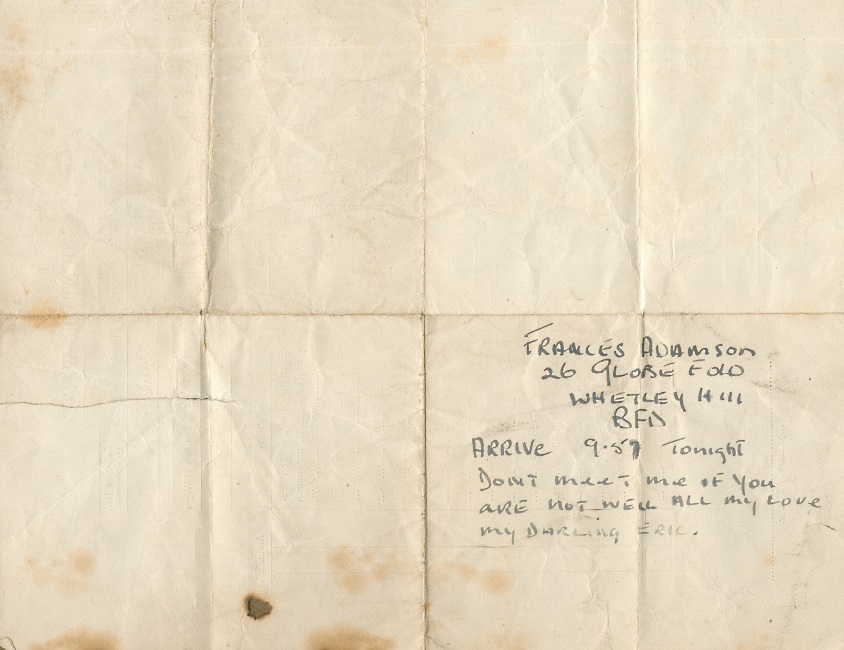 FRANCES ADAMSON
26 GLOBE FOLD
WHETLEY HILL
BFD
ARRIVE 9.57 Tonight
Dont meet me iF You
aRE noT WELL ALL my Love
my DARLing ERIC.